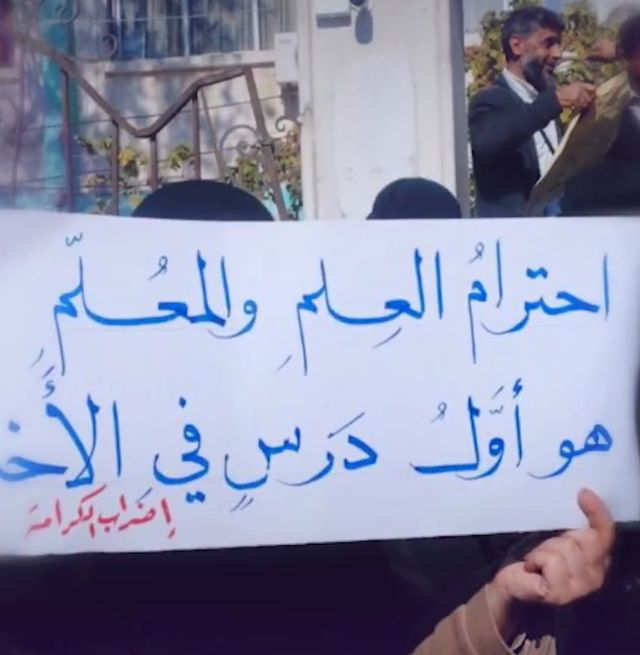 احترامُ العِلمِ والمُعلّمِ
هو أوَّلُ دَرسٍ في الأَخ
إضراب الكرامة